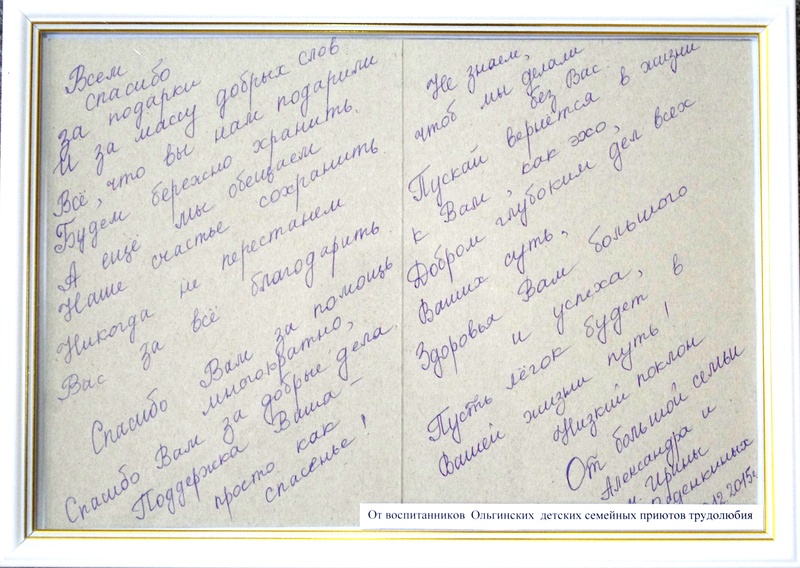 Всем
спасибо
за подарки
И за массу добрых слов
Всё, что вы нам подарили
Будем бережно хранить.
А ещё мы обещаем
Наше счастье сохранить
Никогда не перестанем
Вас за всё благодарить.
Спасибо Вам за помощь
многократно,
Спасибо Вам за добрые дела.
Поддержка Ваша –
просто как
спасенье!
Не знаем,
чтоб мы делали
без Вас.
Пускай вернётся в жизни
к Вам, как эхо,
Добром глубоким дел всех
Ваших суть,
Здоровья Вам большого
и успеха,
Пусть лёгок будет в
Вашей жизни путь!
Низкий поклон
От большой семьи
Александра и
Ирины
12.2015г
От воспитанников Ольгинских детских семейных приютов трудолюбия